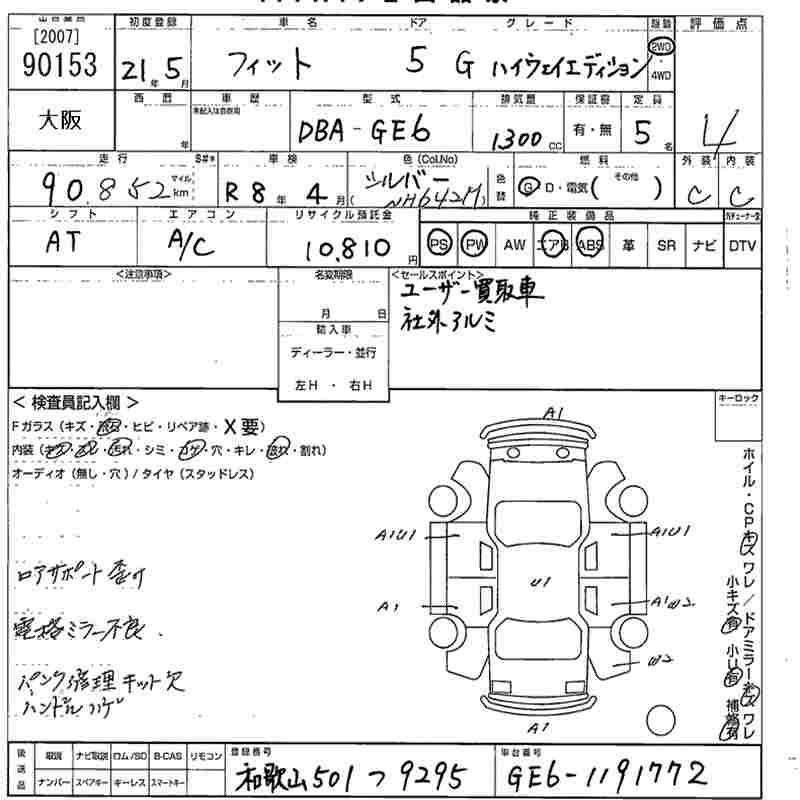 初度登録 車名 ドア グレード 駆動 評価点
[2007]
90153 21年 5月 フィット 5 G ハイウェイエディション 2WD・4WD
4
西暦 車歴 型式 排気量 保証書 定員
大阪 年 未記入は自家用 DBA-GE6 1300cc 有・無 5名
走行 S#* 車検 色(Col.No) 燃料 外装 内装
90,852 マイル km R8年 4月 シルバー (NH642M) 色替 G・D・電気( その他 ) C C
シフト エアコン リサイクル預託金 純正装備品
AT A/C 10,810円 PS PW AW エアB ABS 革 SR ナビ DTV
<注意事項> 名変期限 <セールスポイント>
月 日 ユーザー買取車
輸入車 社外アルミ
ディーラー・並行
左H・右H
< 検査員記入欄 > キーロック
Fガラス (キズ・・ヒビ・リペア跡・X要)
内装 (キズ・・汚れ・シミ・コゲ・穴・キレ・破れ・割れ)
オーディオ (無し・穴) / タイヤ (スタッドレス)
A1
A1U1 A1U1
U1
A1 A1W2
W2
A1
ホイル・CPキズ ワレ / ドアミラーキズ ワレ
小キズ有 小U有 補修有
ロアサポート歪み
電格ミラー不良.
パンク修理キット欠
ハンドルハゲ
後送品 取説 ナビ取説 ロム/SD B-CAS リモコン 登録番号 車台番号
ナンバー スペアキー キーレス スマートキー 和歌山501 つ 9295 GE6-1191772